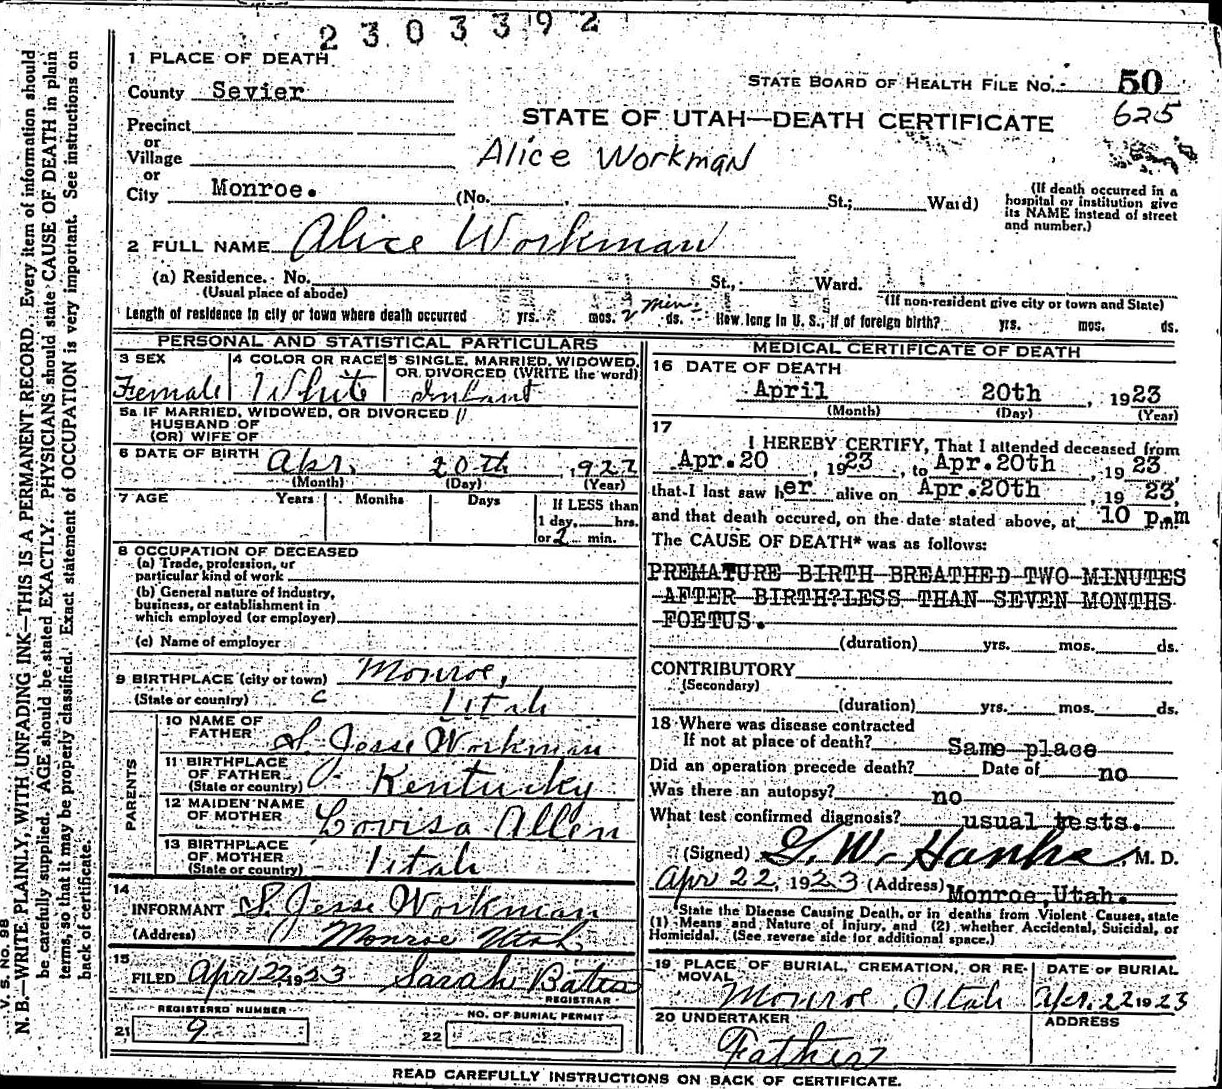 2303392
1 PLACE OF DEATH
STATE BOARD OF HEALTH FILE No. 50
County Sevier
625
STATE OF UTAH—DEATH CERTIFICATE
Precinct
or
Village
Alice Workman
or
City Monroe. (No. St.; Ward)
(If death occurred in a
hospital or institution give
its NAME instead of street
and number.)
2 FULL NAME Alice Workman
(a) Residence. No. St., Ward.
(Usual place of abode)
(If non-resident give city or town and State)
Length of residence in city or town where death occurred yrs. mos. 2 min. ds. How long in U. S., if of foreign birth? yrs. mos. ds.
PERSONAL AND STATISTICAL PARTICULARS
3 SEX
Female
4 COLOR OR RACE
White
5 SINGLE, MARRIED, WIDOWED,
OR DIVORCED (WRITE the word)
Infant
5a IF MARRIED, WIDOWED, OR DIVORCED
HUSBAND OF
(OR) WIFE OF
6 DATE OF BIRTH Apr. 20th, 1922
(Month) (Day) (Year)
7 AGE Years Months Days
If LESS than
1 day, hrs.
or 2 min.
8 OCCUPATION OF DECEASED
(a) Trade, profession, or
particular kind of work
(b) General nature of industry,
business, or establishment in
which employed (or employer)
(c) Name of employer
9 BIRTHPLACE (city or town) Monroe,
(State or country) c Utah
PARENTS
10 NAME OF
FATHER S. Jesse Workman
11 BIRTHPLACE
OF FATHER
(State or country) Kentucky
12 MAIDEN NAME
OF MOTHER Lovisa Allen
13 BIRTHPLACE
OF MOTHER
(State or country) Utah
14
INFORMANT S. Jesse Workman
(Address) Monroe Utah
15
FILED Apr 22 1923 Sarah Bates
REGISTRAR
REGISTERED NUMBER
21 9
NO. OF BURIAL PERMIT
22
MEDICAL CERTIFICATE OF DEATH
16 DATE OF DEATH
April 20th, 1923
(Month) (Day) (Year)
17
I HEREBY CERTIFY, That I attended deceased from
Apr.20, 1923, to Apr.20th, 1923,
that I last saw her alive on Apr.20th, 1923,
and that death occured, on the date stated above, at 10 p.m
The CAUSE OF DEATH* was as follows:
PREMATURE BIRTH BREATHED TWO MINUTES
AFTER BIRTH?LESS THAN SEVEN MONTHS
FOETUS.
(duration) yrs. mos. ds.
CONTRIBUTORY
(Secondary)
(duration) yrs. mos. ds.
18 Where was disease contracted
If not at place of death? Same place
Did an operation precede death? Date of no
Was there an autopsy? no
What test confirmed diagnosis? usual tests.
(Signed) G. W. Hanks, M. D.
Apr 22, 1923 (Address) Monroe,Utah.
*State the Disease Causing Death, or in deaths from Violent Causes, state
(1) Means and Nature of Injury, and (2) whether Accidental, Suicidal, or
Homicidal. (See reverse side for additional space.)
19 PLACE OF BURIAL, CREMATION, OR RE-
MOVAL
Monroe, Utah
DATE OF BURIAL
Apr. 22 1923
20 UNDERTAKER
Father
ADDRESS
READ CAREFULLY INSTRUCTIONS ON BACK OF CERTIFICATE.
V. S. No. 98
N. B.—WRITE PLAINLY, WITH UNFADING INK—THIS IS A PERMANENT RECORD. Every item of information should
be carefully supplied. AGE should be stated EXACTLY. PHYSICIANS should state CAUSE OF DEATH in plain
terms, so that it may be properly classified. Exact statement of OCCUPATION is very important. See instructions on
back of certificate.